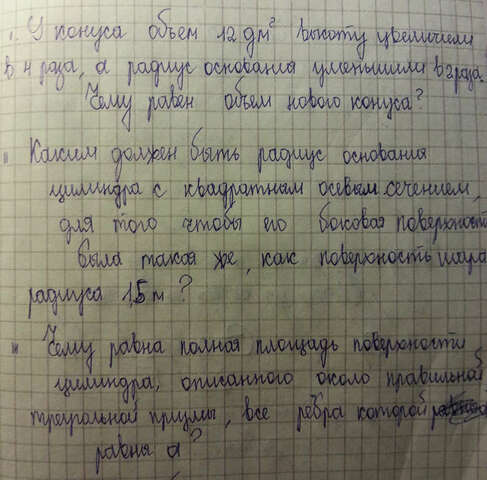 1. У конуса объем 12 дм³ высоту увеличили
в 4 раза, а радиус основания уменьшили в 2 раза.
Чему равен объем нового конуса?
" Каким должен быть радиус основания
цилиндра с квадратным осевым сечением,
для того чтобы его боковая поверхность
была такая же, как поверхность шара
радиуса 1,5 м?
" Чему равна полная площадь поверхности
цилиндра, описанного около правильной
треугольной призмы, все ребра которой
равны a?